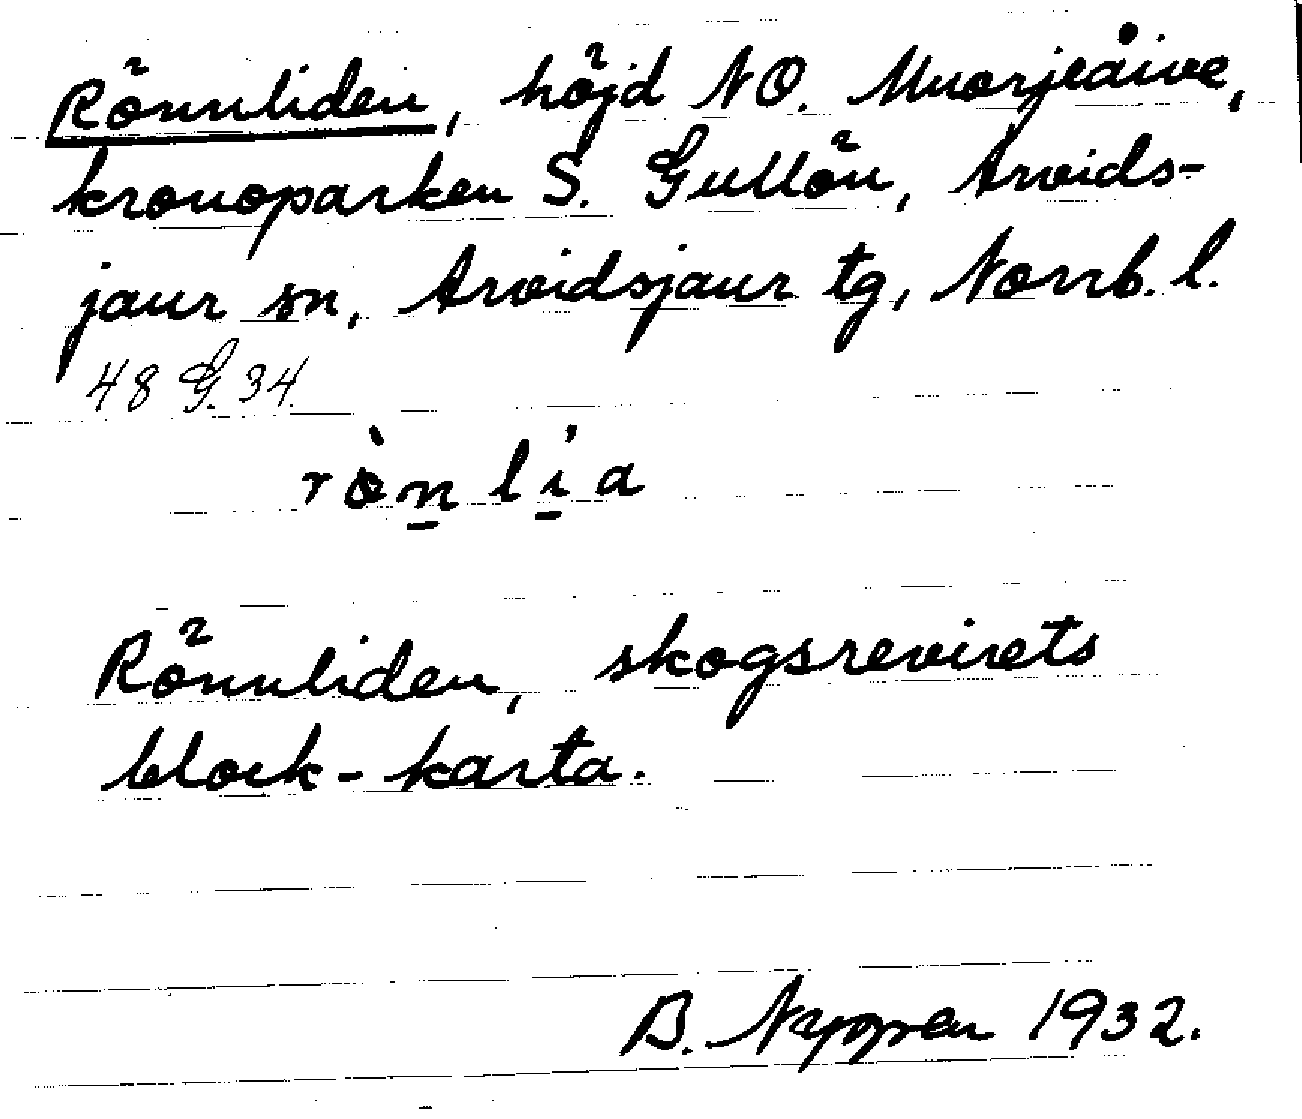 Rönnliden, höjd NO. Muorjeåive,
kronoparken S. Gullön, Arvids-
jaur sn, Arvidsjaur tg, Norrb. l.
48 G. 34.
ròn̲ lí̲a
Rönnliden, skogsrevirets
block-karta.
B. 1932.